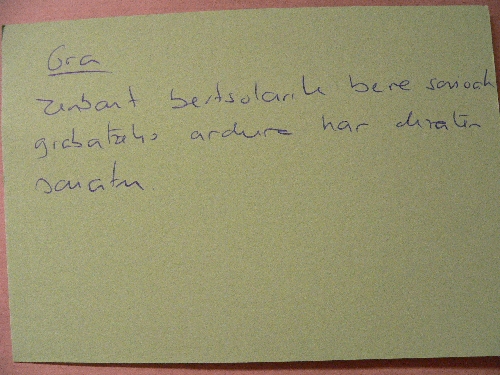 Gra
zenbait bertsolarik bere saioak
grabatzeko ardura har dezaten
sariatu